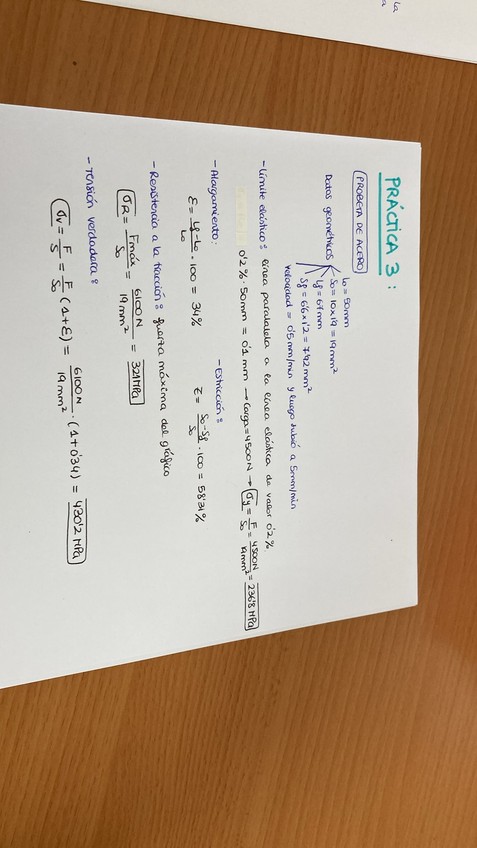 PRÁCTICA 3:
PROBETA DE ACERO
Datos geométricos
L₀ = 50mm
S₀ = 10x1'9 = 19mm²
Lf = 67mm
Sf = 6'6x1'2 = 7'92mm²
velocidad = 0'5mm/min y luego subió a 5mm/min
- Límite elástico: línea paralela a la línea elástica de valor 0'2%
0'2% · 50mm = 0'1mm → Carga = 4500N → σy = F/S₀ = 4500N/19mm² = 236'8 MPa
- Alargamiento:
ε = Lf-L₀/L₀ · 100 = 34%
- Estricción:
z = S₀-Sf/S₀ · 100 = 58'31%
- Resistencia a la tracción: fuerza máxima del gráfico
σR = Fmáx/S₀ = 6100N/19mm² = 321MPa
- Tensión verdadera:
σv = F/S = F/S₀ (1+ε) = 6100N/19mm² · (1+0'34) = 430'2 MPa
la
a